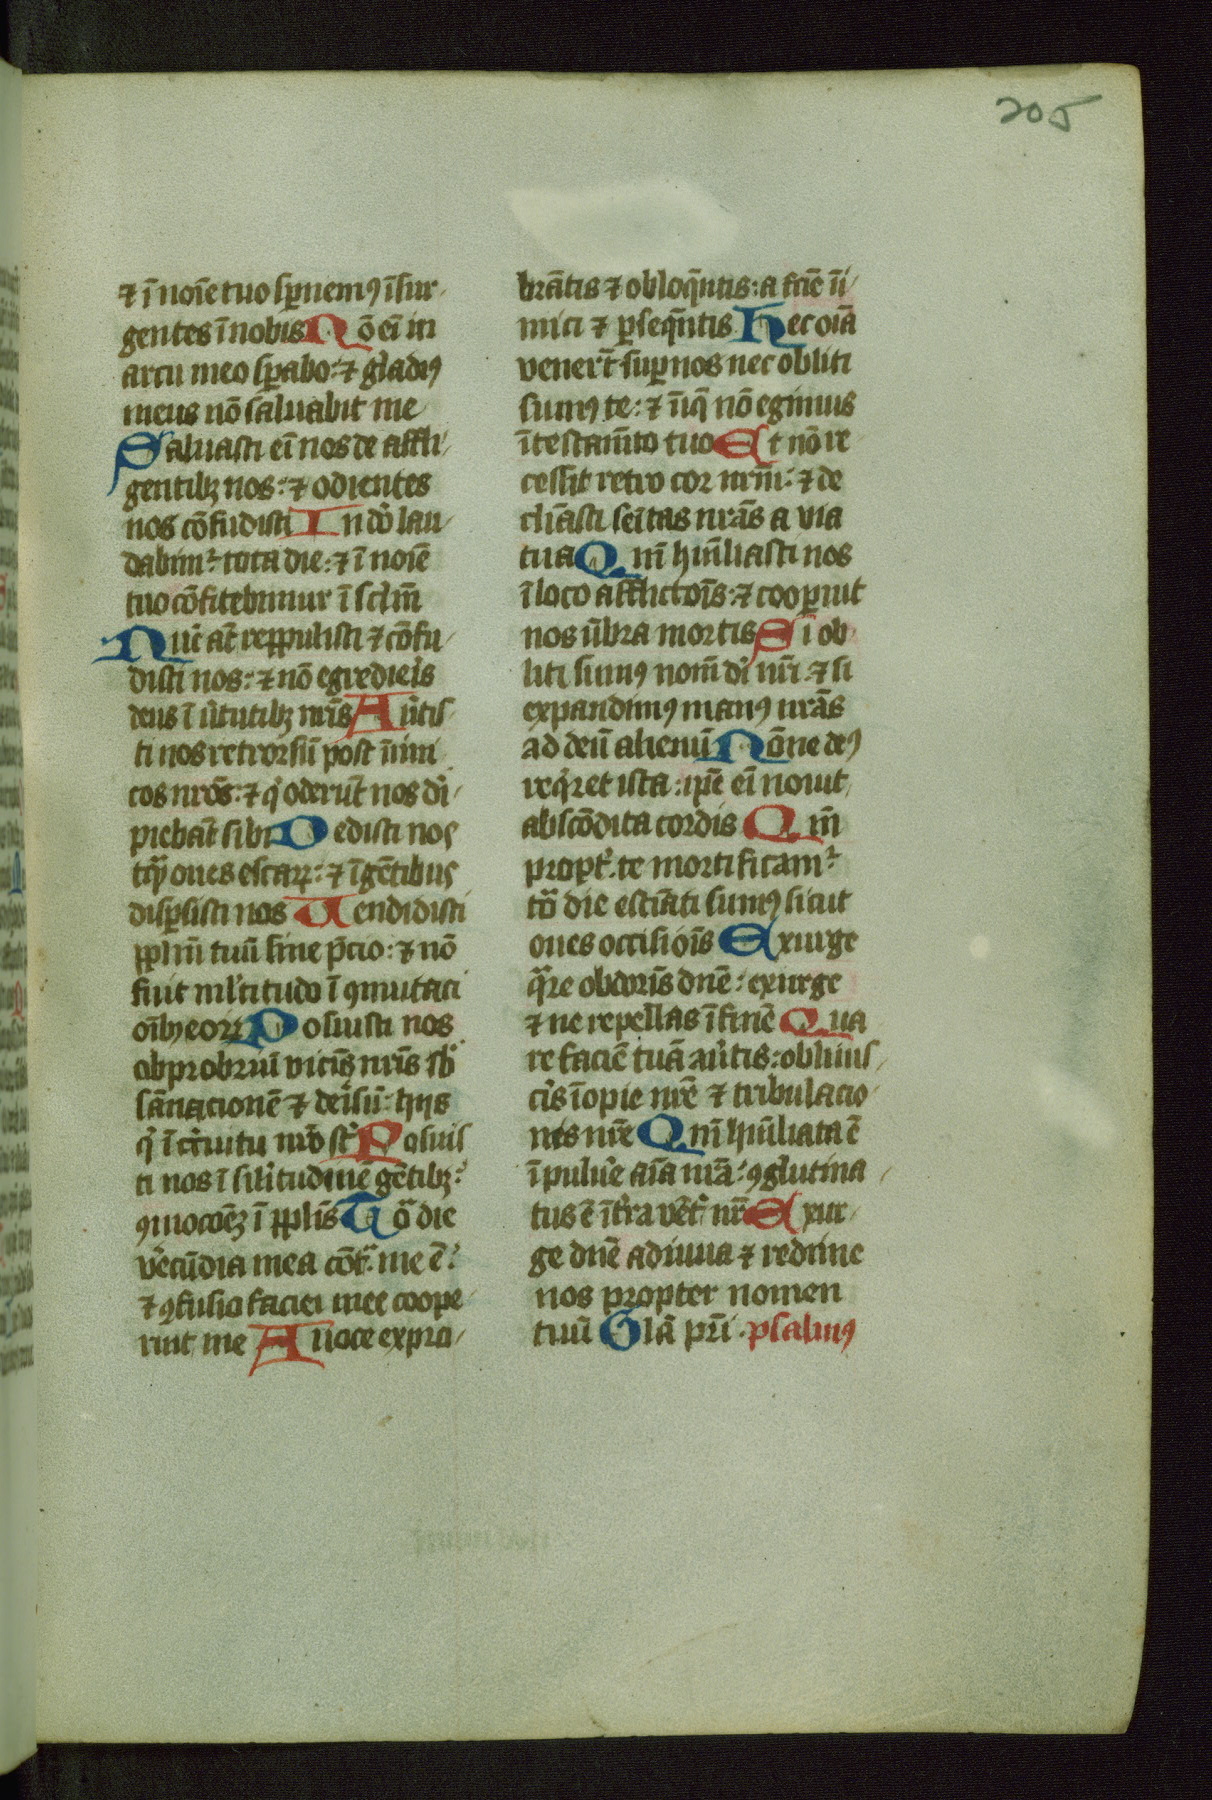 205
⁊ ī noīe tuo sp̄nemꝯ īsur
gentes ī nobis Nō eī in
arcu meo sp̄abo: ⁊ gladiꝯ
meus nō saluabit me
Saluasti eī nos de affli
gentibꝫ nos: ⁊ odientes
nos cōfudisti In dō lau
dabimr tota die: ⁊ ī noīe
tuo cōfitebimur ī sclm̄
Nūc āt reppulisti ⁊ cōfu
disti nos: ⁊ nō egredieis
deus ī v̄tutibꝫ nr̄is Av̄tis
ti nos retrorsū post īimi
cos nrōs: ⁊ q̄ oderūt nos di
piebāt sibi Dedisti nos
tq̄ oues escaꝝ: ⁊ ī gētibus
disp̄sisti nos Uendidisti
pplm̄ tuū sine p̄cio: ⁊ nō
fuit ml̄titudo ī ꝯmutaci
oībꝫ eoꝝ Posuisti nos
obprobriū vicīs nr̄is sb
sānacionē ⁊ derisū hijs
q̄ ī cr̄cuitu nrō st̄ Posuis
ti nos ī sil̄itudinē gētibꝫ:
ꝯmocōeꝫ ī pplīs Tō die
v̄ecūdia mea cōt̄ me ē:
⁊ ꝯfusio faciei mee coope
ruit me A uoce expro
brātis ⁊ obloq̄ntis: a fcīe īi
mici ⁊ p̄seq̄ntis Hec oīa
venert̄ sup̄ nos nec obliti
sumꝯ te: ⁊ īiq̄ nō egimus
ī testam̄to tuo Et nō re
cessit retro cor nrm̄: ⁊ de
clīasti seītas nrās a via
tua Qm̄ hūīliasti nos
ī loco afflictoīs: ⁊ coop̄uit
nos ūbra mortis Si ob
liti sumꝯ nom̄ di nr̄i ⁊ si
expandimꝯ manꝯ nrās
ad deū alienū Nōne deꝯ
reqret ista: ipē eī nouit
abscōdita cordis Qm̄
propt̄ te mortificamr
tō die estīati sumꝯ sicut
oues occisioīs Exurge
q̄re obdoris dnē: exurge
⁊ ne repellas ī finē Qua
re faciē tuā av̄tis: obliuis
cis īopie nrē ⁊ tribulacio
nis nrē Qm̄ hūīliata ē
ī pulūe aīa nrā: ꝯglutina
tus ē ī tr̄a vēt̄ nr̄ Exur
ge dnē adiuua ⁊ redime
nos propter nomen
tuū Glā pr̄i. psalmꝯ